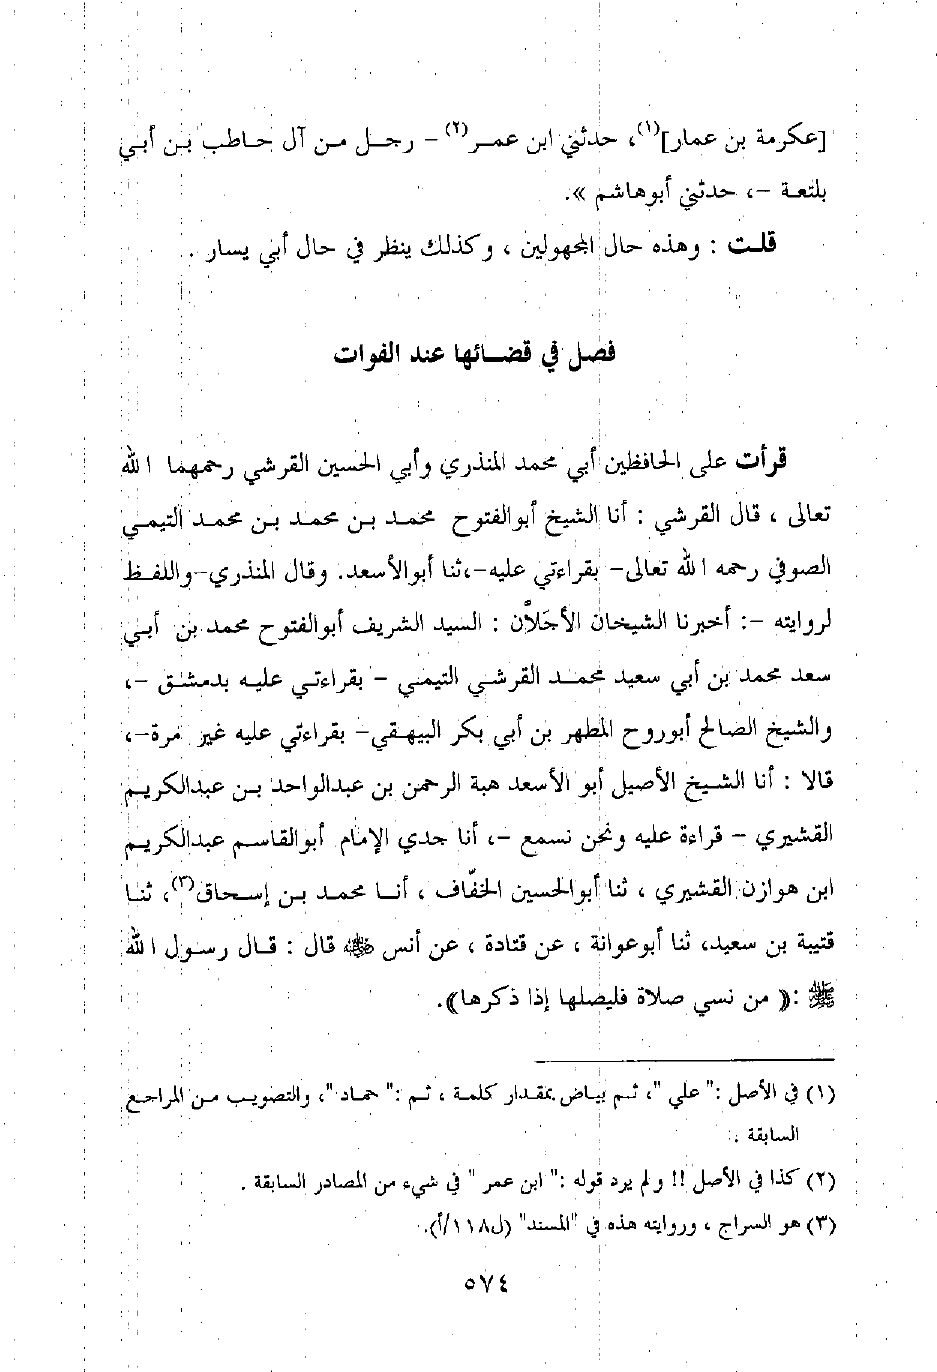 [عكرمة بن عمار](١)، حدثني ابن عمر(٢) – رجل من آل حاطب بن أبي
بلتعة –، حدثني أبوهاشم ».
قلت : وهذه حال المجهولين ، وكذلك ينظر في حال أبي يسار .
فصل في قضائها عند الفوات
قرأت على الحافظين أبي محمد المنذري وأبي الحسين القرشي رحمهما الله
تعالى ، قال القرشي : أنا الشيخ أبوالفتوح محمد بن محمد بن محمد التيمي
الصوفي رحمه الله تعالى– بقراءتي عليه–،ثنا أبوالأسعد. وقال المنذري–واللفظ
لروايته –: أخبرنا الشيخان الأجَلاَّن : السيد الشريف أبوالفتوح محمد بن أبي
سعد محمد بن أبي سعيد محمد القرشي التيمي – بقراءتي عليه بدمشق –،
والشيخ الصالح أبوروح المطهر بن أبي بكر البيهقي– بقراءتي عليه غير مرة–،
قالا : أنا الشيخ الأصيل أبو الأسعد هبة الرحمن بن عبدالواحد بن عبدالكريم
القشيري – قراءة عليه ونحن نسمع –، أنا جدي الإمام أبوالقاسم عبدالكريم
ابن هوازن القشيري ، ثنا أبوالحسين الخفَّاف ، أنا محمد بن إسحاق(٣)، ثنا
قتيبة بن سعيد، ثنا أبوعوانة ، عن قتادة ، عن أنس ﷺ قال : قال رسول الله
ﷺ :(( من نسي صلاة فليصلها إذا ذكرها)).
(١) في الأصل :" علي "، ثم بياض بمقدار كلمة ، ثم :" حماد "، والتصويب من المراجع
السابقة .
(٢) كذا في الأصل !! ولم يرد قوله :" ابن عمر " في شيء من المصادر السابقة .
(٣) هو السراج ، وروايته هذه في "المسند" (ل١١٨/أ).
٥٧٤